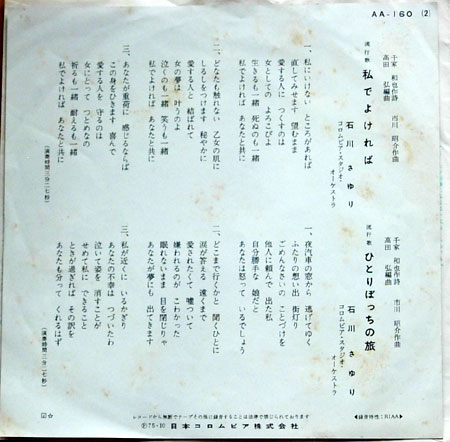 AA-160 (2)
千家 和也作詩
市川 昭介作曲
高田 弘編曲
流行歌 私でよければ
石川 さゆり
コロムビア・スタジオ・
オーケストラ
一、私にいけない ところがあれば
直してみせます 望むまま
愛する人に つくすのは
女としての よろこびよ
生きるも一緒 死ぬのも一緒
私でよければ あなたと共に
二、どなたも触れない 乙女の肌に
しるしをつけます 秘やかに
愛する人と 結ばれて
女の夢は 叶うのよ
泣くのも一緒 笑うも一緒
私でよければ あなたと共に
三、あなたが重荷に 感じるならば
この身をひきます 喜んで
愛する人を 守るのは
女にとって つとめなの
祈るも一緒 耐えるも一緒
私でよければ あなたと共に
(演奏時間三分二七秒)
千家 和也作詩
市川 昭介作曲
高田 弘編曲
流行歌 ひとりぼっちの旅
石川 さゆり
コロムビア・スタジオ・
オーケストラ
一、夜汽車の窓から 逃げてゆく
ふたりの想い出 街灯り
ごめんなさいの ことづけを
他人に頼んで 出た私
自分勝手な 娘だと
あなたは怒って いるでしょう
二、どこまで行くかと 聞くひとに
涙が答える 遠くまで
愛されたくて 嘘ついて
嫌われるのが こわかった
眠れないまま 目を閉じりゃ
あなたが夢にも 出てきます
三、私が近くに いるかぎり
あなたの不幸は つづいたわ
泣いて姿を 消すことが
せめて私に できること
ときが過ぎれば その訳を
あなたも分って くれるはず
(演奏時間三分二七秒)
レコードから無断でテープその他に録音することは法律で禁じられております
℗75・10 日本コロムビア株式会社
◀録音特性:RIAA▶